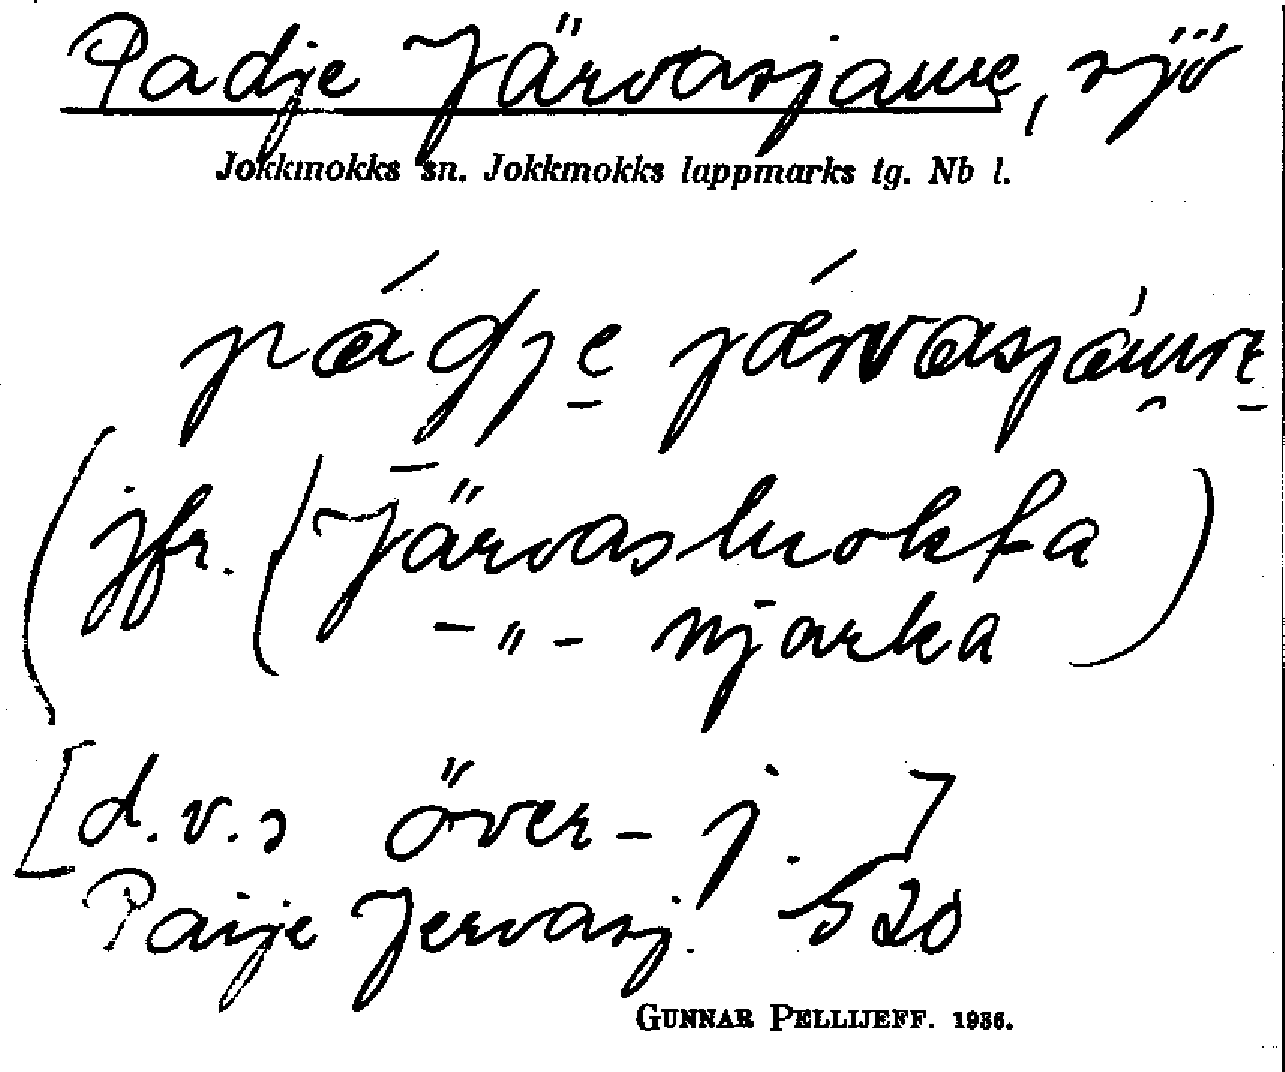 Padje Järvasjaure, sjö
Jokkmokks sn. Jokkmokks lappmarks tg. Nb l.
pádje járvasjáure
(jfr. (Järvasluokta)
-"- njarka
[d.v.s över-j.]
Paije Jervasj. S 20
GUNNAR PELLIJEFF. 1936.